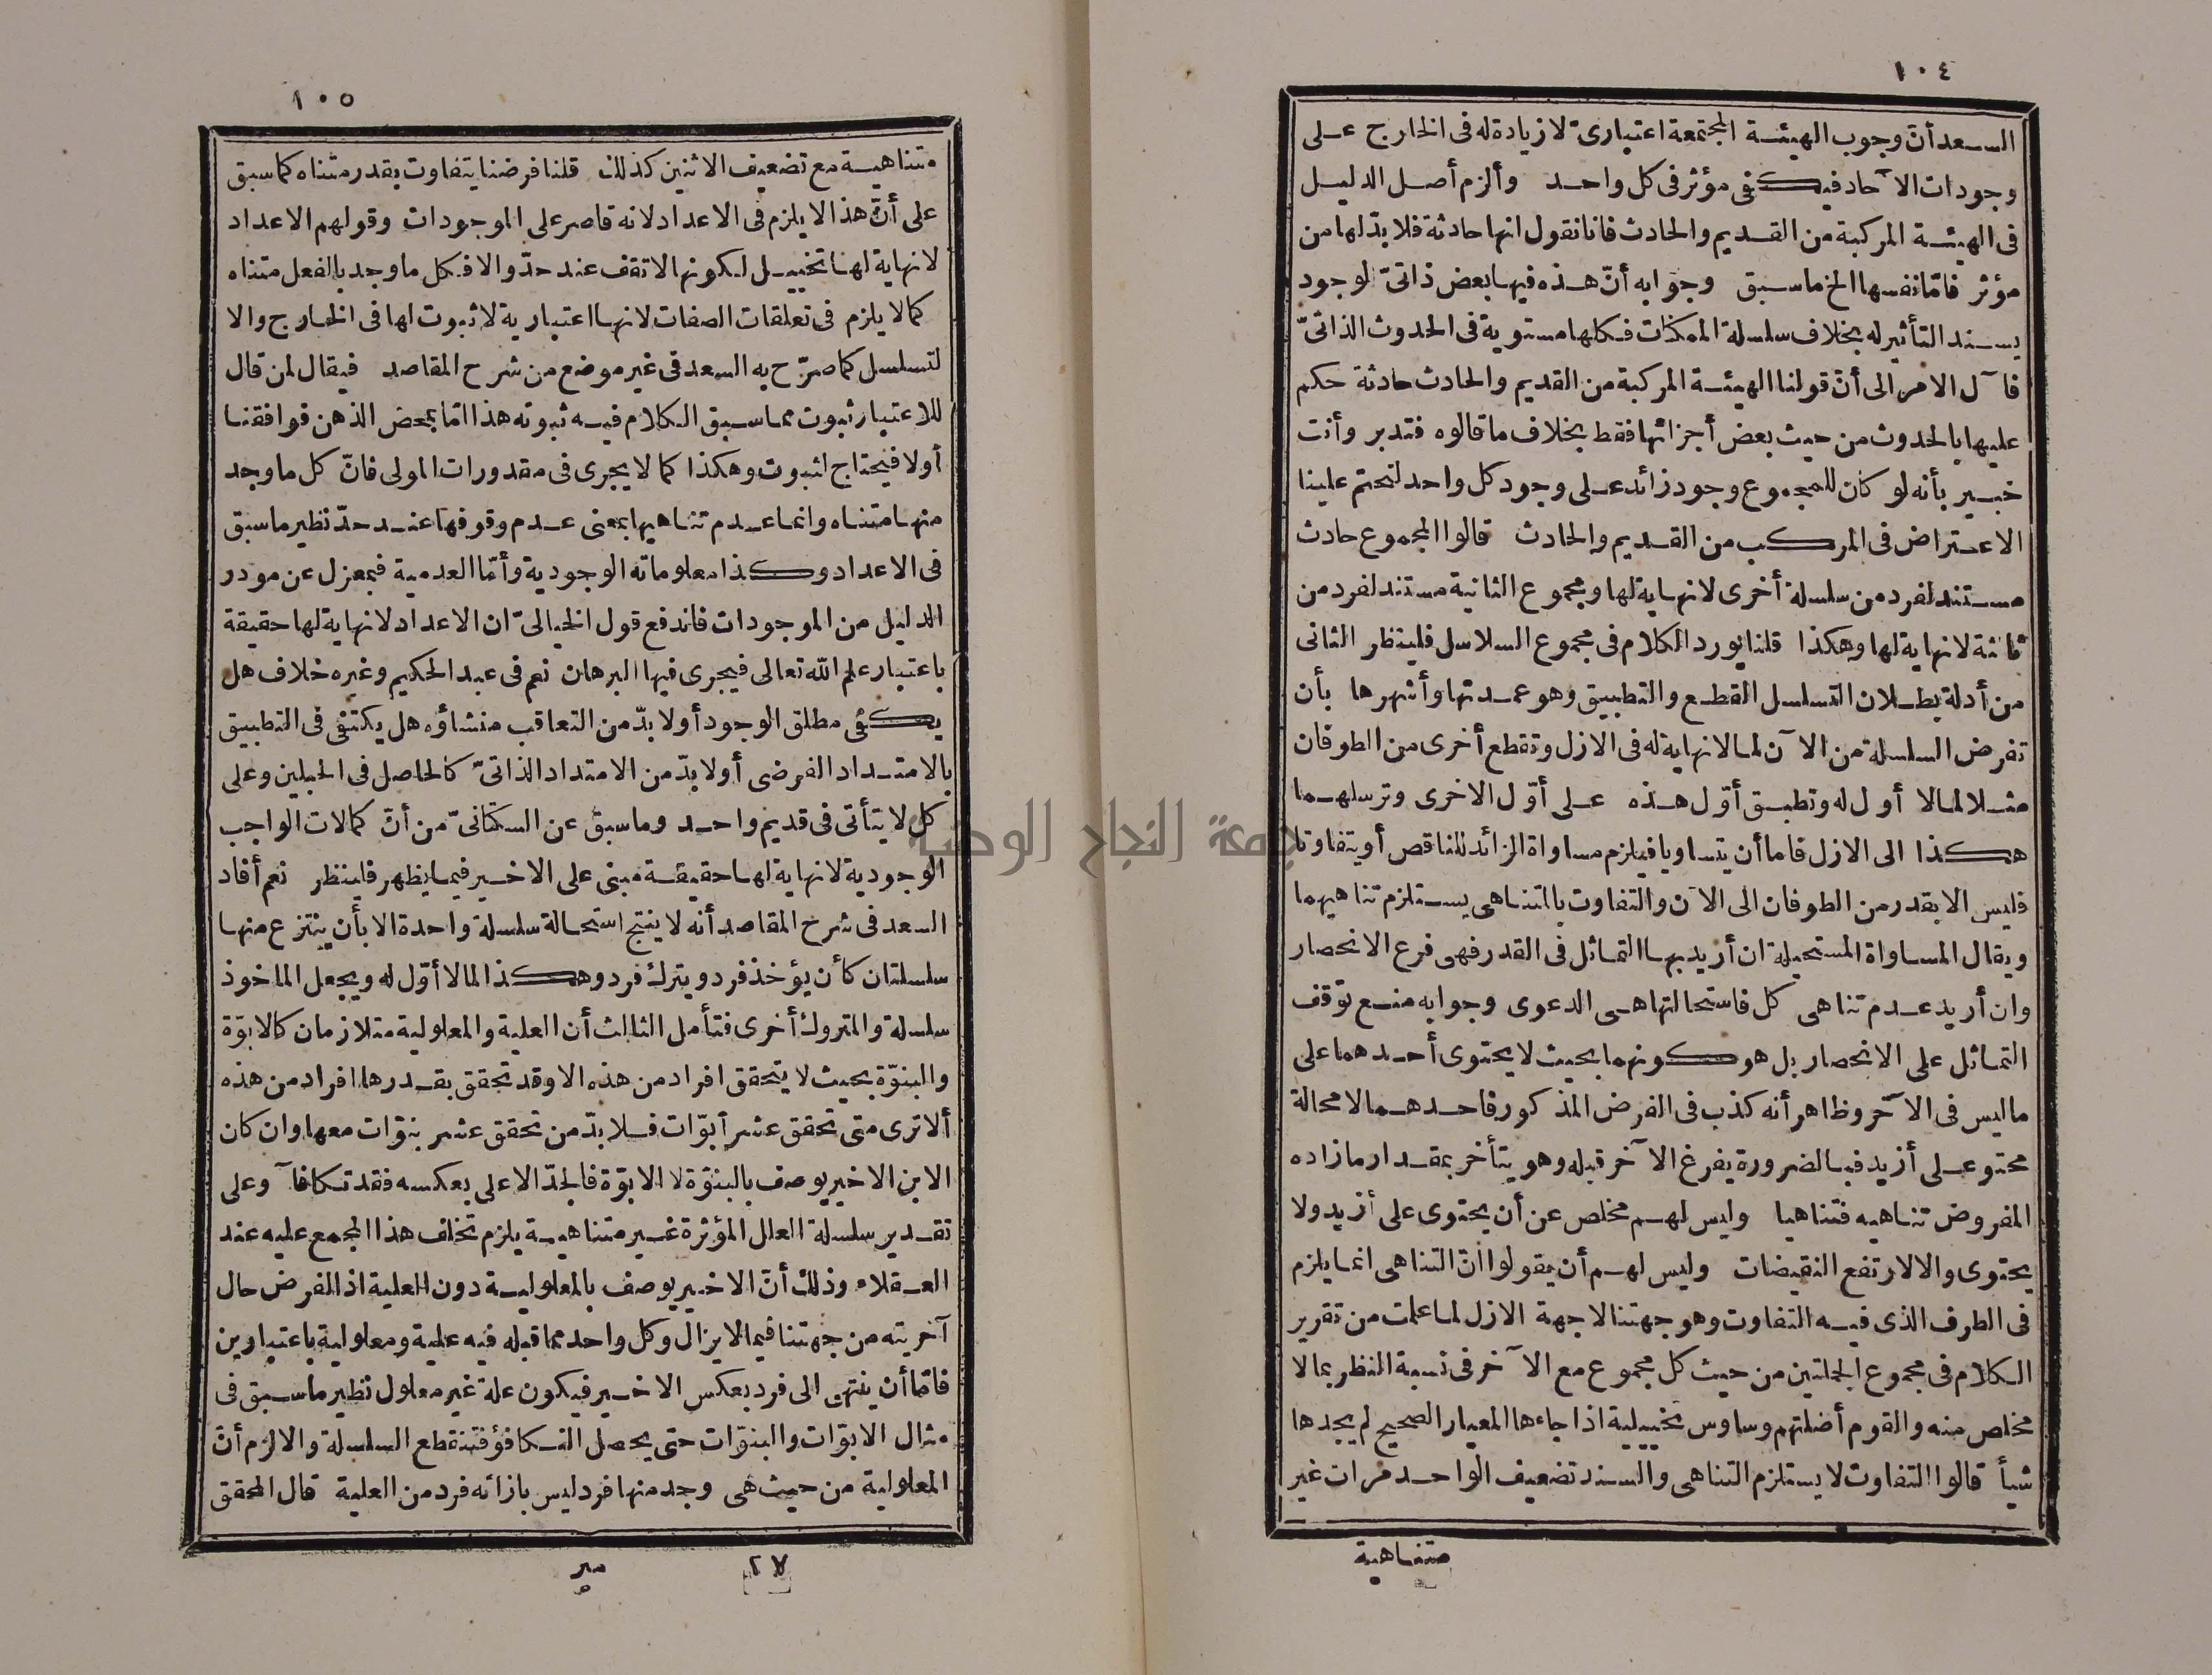 ١٠٤
السعد أنّ وجوب الهيئة المجتمعة اعتبارىّ لا زيادة له فى الخارج على
وجودات الآحاد فيكفى مؤثر فى كل واحد وألزم أصل الدليل
فى الهيئة المركبة من القديم والحادث فانا نقول انها حادثة فلا بدّ لها من
مؤثر فامّا نفسها الخ ما سبق وجوابه أنّ هذه فيها بعض ذاتىّ الوجود
يسند التأثير له بخلاف سلسلة الممكنات فكلها مستوية فى الحدوث الذاتىّ
فآل الامر الى أنّ قولنا الهيئة المركبة من القديم والحادث حادثة حكم
عليها بالحدوث من حيث بعض أجزائها فقط بخلاف ما قالوه فتدبر وأنت
خبير بأنه لو كان للمجموع وجود زائد على وجود كل واحد لتحتم علينا
الاعتراض فى المركب من القديم والحادث قالوا المجموع حادث
مستند لفرد من سلسلة أخرى لا نهاية لها ومجموع الثانية مستند لفرد من
ثالثة لا نهاية لها وهكذا قلنا نورد الكلام فى مجموع السلاسل فلينظر الثانى
من أدلة بطلان التسلسل القطع والتطبيق وهو عمدتها وأشهرها بأن
تفرض السلسلة من الآن لما لا نهاية له فى الازل وتقطع أخرى من الطوفان
مثلا لما لا أول له وتطبق أوّل هذه على أوّل الاخرى وترسلهما
هكذا الى الازل فاما أن يتساويا فيلزم مساواة الزائد للناقص أو يتفاوتا
فليس الا بقدر من الطوفان الى الآن والتفاوت بالمتناهى يستلزم تناهيهما
ويقال المساواة المستحيلة ان أريد بها التماثل فى القدر فهى فرع الانحصار
وان أريد عدم تناهى كل فاستحالتها هى الدعوى وجوابه منع توقف
التماثل على الانحصار بل هو كونهما بحيث لا يحتوى أحدهما على
ما ليس فى الآخر وظاهر أنه كذب فى الفرض المذكور فاحدهما لا محالة
محتو على أزيد فبالضرورة يفرغ الآخر قبله وهو يتأخر بمقدار ما زاده
المفروض تناهيه فتناهيا وليس لهم مخلص عن أن يحتوى على أزيد ولا
يحتوى والا لارتفع النقيضات وليس لهم أن يقولوا انّ التناهى انما يلزم
فى الطرف الذى فيه التفاوت وهو جهتنا لا جهة الازل لما علمت من تقرير
الكلام فى مجموع الجملتين من حيث كل مجموع مع الآخر فى نسبة النظر بما لا
مخلص منه والقوم أضلتهم وساوس تخييلية اذا جاءها المعيار الصحيح لم يجدها
شيأ قالوا التفاوت لا يستلزم التناهى والسند تضعيف الواحد مرات غير
متناهية
١٠٥
متناهية مع تضعيف الاثنين كذلك قلنا فرضنا يتفاوت بقدر متناه كما سبق
على أنّ هذا لا يلزم فى الاعداد لانه قاصر على الموجودات وقولهم الاعداد
لا نهاية لها تخييل لكونها لا تقف عند حدّ والا فكل ما وجد بالفعل متناه
كما لا يلزم فى تعلقات الصفات لانها اعتبارية لا ثبوت لها فى الخارج والا
لتسلسل كما صرّح به السعد فى غير موضع من شرح المقاصد فيقال لمن قال
للاعتبار ثبوت مما سبق الكلام فيه ثبوته هذا امّا بمحض الذهن فوافقنا
أولا فيحتاج لثبوت وهكذا كما لا يجرى فى مقدورات المولى فانّ كل ما وجد
منها متناه وانما عدم تناهيها بمعنى عدم وقوفها عند حدّ نظير ما سبق
فى الاعداد وكذا معلوماته الوجودية وأمّا العدمية فبمعزل عن مورد
الدليل من الموجودات فاندفع قول الخيالىّ ان الاعداد لا نهاية لها حقيقة
باعتبار علم الله تعالى فيجرى فيها البرهان نعم فى عبد الحكيم وغيره خلاف هل
يكفى مطلق الوجود أولا بدّ من التعاقب منشاؤه هل يكتفى فى التطبيق
بالامتداد الفرضى أولا بدّ من الامتداد الذاتىّ كالحاصل فى الحبلين وعلى
كل لا يتأتى فى قديم واحد وما سبق عن السكتانىّ من أنّ كمالات الواجب
الوجودية لا نهاية لها حقيقة مبنى على الاخير فيما يظهر فلينظر نعم أفاد
السعد فى شرح المقاصد أنه لا ينتج استحالة سلسلة واحدة الا بأن ينتزع منها
سلسلتان كأن يؤخذ فرد ويترك فرد وهكذا لما لا أوّل له ويجعل الماخوذ
سلسلة والمتروك أخرى فتأمل الثالث أن العلية والمعلولية متلازمان كالابوّة
والبنوّة بحيث لا يتحقق افراد من هذه الا وقد تحقق بقدرها افراد من هذه
ألا ترى متى تحقق عشر أبوّات فلا بدّ من تحقق عشر بنوّات معها وان كان
الابن الاخير يوصف بالبنوّة لا الابوّة فالجدّ الاعلى بعكسه فقد تكافآ وعلى
تقدير سلسلة العلل المؤثرة غير متناهية يلزم تخلف هذا المجمع عليه عند
العقلاء وذلك أنّ الاخير يوصف بالمعلولية دون العلية اذ الفرض حال
آخريته من جهتنا فيما لا يزال وكل واحد مما قبله فيه علية ومعلولية باعتبارين
فامّا أن ينتهى الى فرد بعكس الاخير فيكون علة غير معلول نظير ما سبق فى
مثال الابوّات والبنوّات حتى يحصل التكافؤ فتنقطع السلسلة والا لزم أنّ
المعلولية من حيث هى وجد منها فرد ليس بازائه فرد من العلية قال المحقق
مير
جامعة النجاح الوطنية